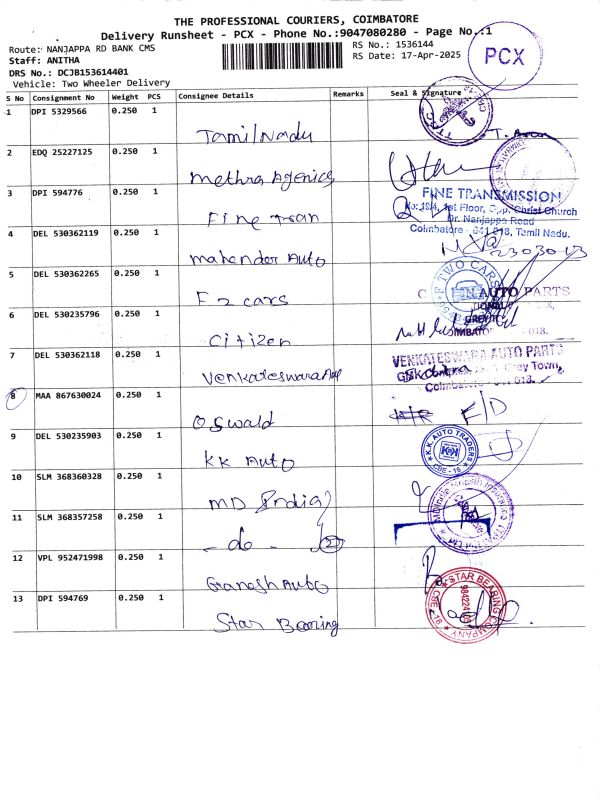 THE PROFESSIONAL COURIERS, COIMBATORE
Delivery Runsheet - PCX - Phone No.:9047080280 - Page No.:1
Route: NANJAPPA RD BANK CMS
RS No.: 1536144
Staff: ANITHA
RS Date: 17-Apr-2025
DRS No.: DCJB153614401
Vehicle: Two Wheeler Delivery
PCX
S No Consignment No Weight PCS Consignee Details Remarks Seal & Signature
1 DPI 5329566 0.250 1 Tamil Nadu
2 EDQ 25227125 0.250 1 methra Agenics
3 DPI 594776 0.250 1 Fine Tran
FINE TRANSMISSION
No: 194, 1st Floor, Opp. Christ Church
Dr. Nanjappa Road
Coimbatore - 641 018, Tamil Nadu.
4 DEL 530362119 0.250 1 mahender Auto
5 DEL 530362265 0.250 1 F2 cars
F TWO CARS
AUTO PARTS
6 DEL 530235796 0.250 1 Citizen
018.
7 DEL 530362118 0.250 1 Venkateswara
VENKATESWARA AUTO PARTS
Grey Town,
Coimbatore - 641 018.
8 MAA 867630024 0.250 1 Oswald F/D
9 DEL 530235903 0.250 1 KK Auto
K.K. AUTO TRADERS
KK
CBE - 18
10 SLM 368360328 0.250 1 MD India
11 SLM 368357258 0.250 1 - do - 2
12 VPL 952471998 0.250 1 Ganesh Auto
13 DPI 594769 0.250 1 Star Bearing
STAR BEARING COMPANY
CBE - 18